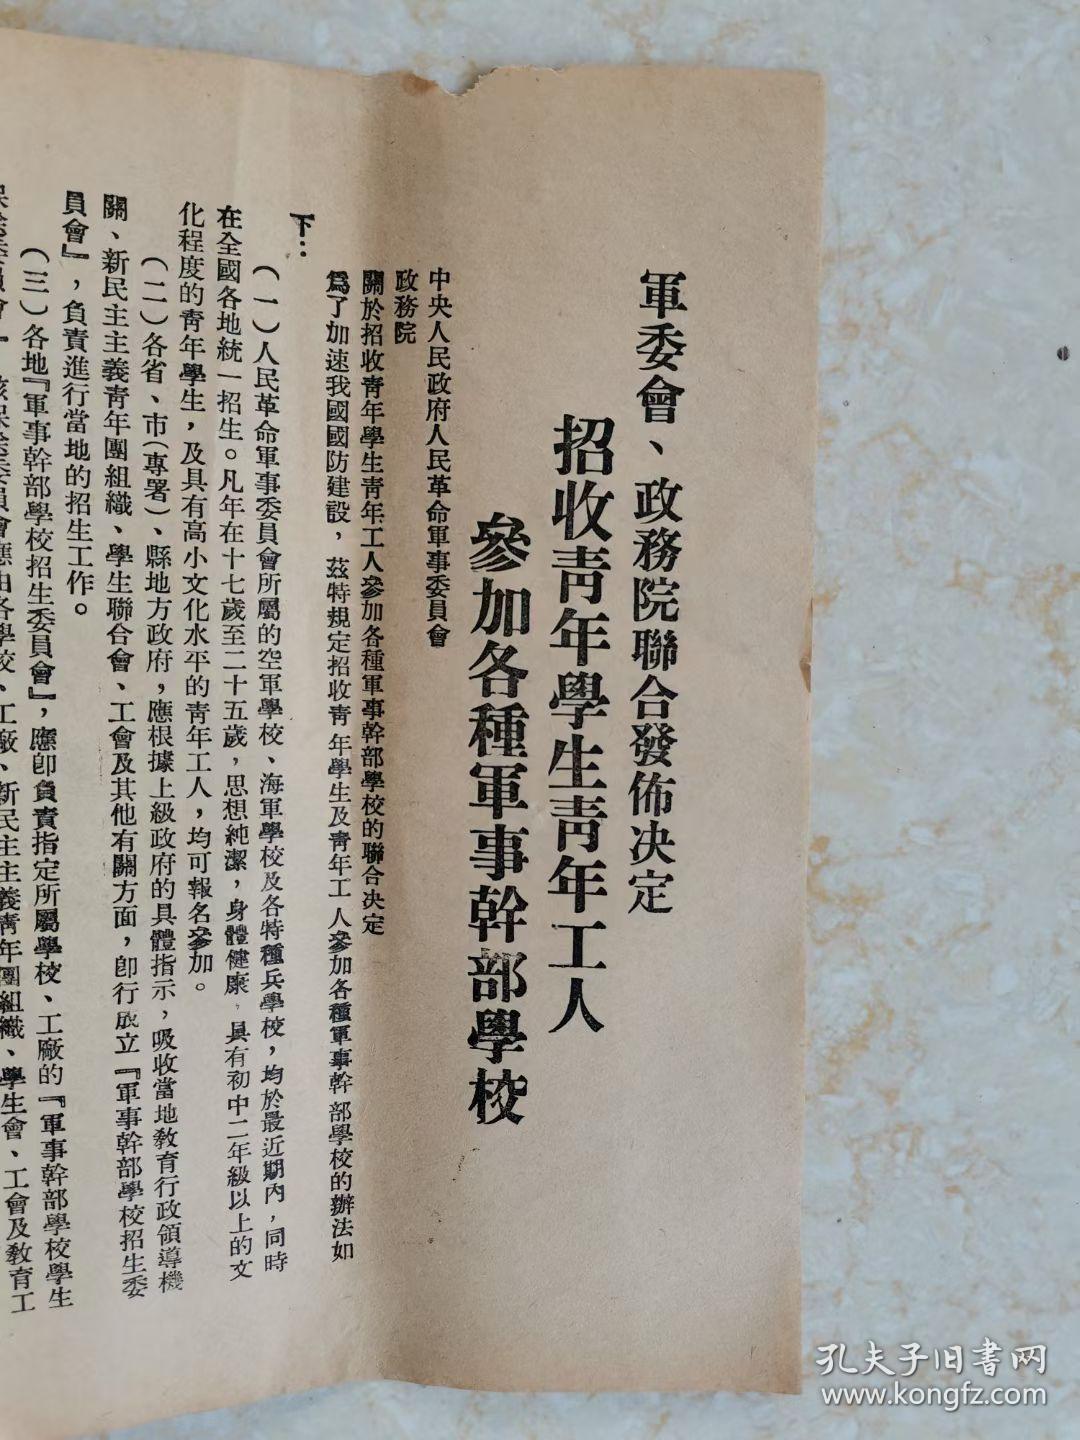 軍委會、政務院聯合發佈决定
招收靑年學生靑年工人
參加各種軍事幹部學校
中央人民政府人民革命軍事委員會
政務院
關於招收靑年學生靑年工人參加各種軍事幹部學校的聯合决定
爲了加速我國國防建設，茲特規定招收靑年學生及靑年工人參加各種軍事幹部學校的辦法如
下：
（一）人民革命軍事委員會所屬的空軍學校、海軍學校及各特種兵學校，均於最近期內，同時
在全國各地統一招生。凡年在十七歲至二十五歲，思想純潔，身體健康，具有初中二年級以上的文
化程度的靑年學生，及具有高小文化水平的靑年工人，均可報名參加。
（二）各省、市（專署）、縣地方政府，應根據上級政府的具體指示，吸收當地敎育行政領導機
關、新民主主義靑年團組織、學生聯合會、工會及其他有關方面，卽行成立『軍事幹部學校招生委
員會』，負責進行當地的招生工作。
（三）各地『軍事幹部學校招生委員會』，應卽負責指定所屬學校、工廠的『軍事幹部學校學生
保送委員會』，該保送委員會應由各學校、工廠、新民主主義靑年團組織、學生會、工會及敎育工
孔夫子旧書网
www.kongfz.com